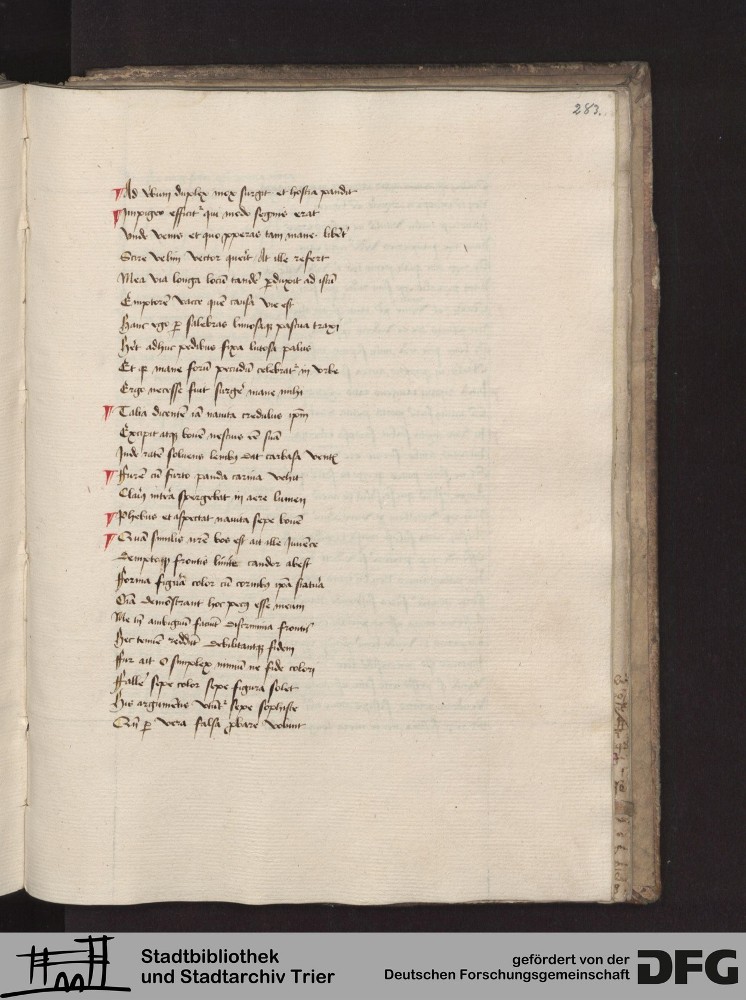 283.
Ad vocem duplex mox surgit et hostia pandit
Impiger efficitur qui modo segnis erat
Unde venis et quo properas tam mane libenter
Scire velim vector querit At ille refert
Mea via longa locum tandem perduxit ad istum
Emptorem vacce quem causa vie est
Hanc ego per salebras limosaque pascua traxi
Heret adhuc pedibus fixa lutosa palus
Et quia mane forum pecudum celebratur in urbe
Ergo necesse fuit surgere mane mihi
Talia dicentem iam nauta credulus ipsum
Excipit atque bovem nescius esse suam
Inde ratem solvens lembum dat carbasa ventis
Furem cum furto panda carina vehit
Clarum intrea spergebat in aere lumen
Phebus et aspectat nauta sepe bovem
Quam similis nostre bos est ait ille iuvence
Demptoque frontis limite candor abest
Forma figura color cum cornibus ipsa statura
Omnia demonstrant hoc pecus esse meum
Me tamen ambiguum faciunt discrimina frontis
Hec tenuem reddunt debilitantque fidem
Fur ait O simplex nimium ne fide colori
Fallere sepe color sepe figura solet
His argumentis utuntur sepe sophiste
Cum per vera falsa probare volunt
Stadtbibliothek
und Stadtarchiv Trier
gefördert von der
Deutschen Forschungsgemeinschaft
DFG